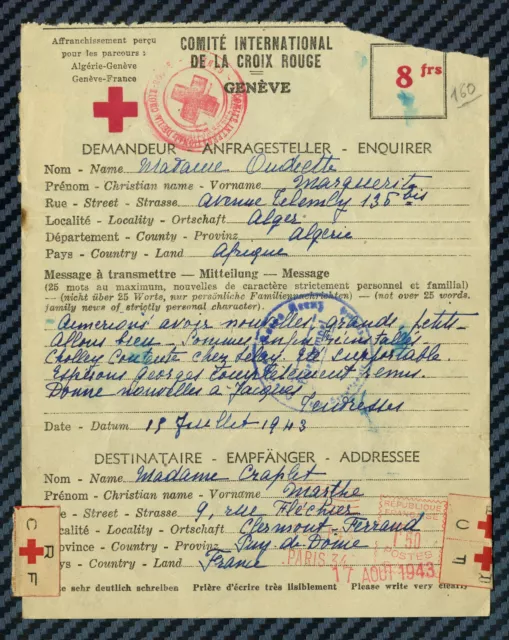 Affranchissement perçu
pour les parcours :
Algérie-Genève
Genève-France
COMITÉ INTERNATIONAL
DE LA CROIX ROUGE
GENÈVE
8 frs
160
DEMANDEUR - ANFRAGESTELLER - ENQUIRER
Nom - Name Madame Oudiette
Prénom - Christian name - Vorname Marguerite
Rue - Street - Strasse avenue Telemly 135 bis
Localité - Locality - Ortschaft Alger
Département - County - Provinz Algérie
Pays - Country - Land Afrique
Message à transmettre — Mitteilung — Message
(25 mots au maximum, nouvelles de caractère strictement personnel et familial)
— (nicht über 25 Worte, nur persönliche Familiennachrichten) — (not over 25 words,
family news of strictly personal character).
Aimerions avoir nouvelles grands petits
allons bien sommes enfin réinstallés
Cholley contente chez Été supportable.
Espérons Georges complètement remis
Donne nouvelles à Jacques
Tendresses
Date - Datum 15 Juillet 1943
DESTINATAIRE - EMPFÄNGER - ADDRESSEE
Nom - Name Madame Craplet
Prénom - Christian name - Vorname Marthe
Rue - Street - Strasse 9, rue Fléchier
Localité - Locality - Ortschaft Clermont-Ferrand
Province - County - Provinz Puy-de-Dôme
Pays - Country - Land France
RÉPUBLIQUE
FRANÇAISE
1 F 50
POSTES
PARIS 34
17 AOUT 1943
C R F
O T
se sehr deutlich schreiben Prière d'écrire très lisiblement Please write very clearly